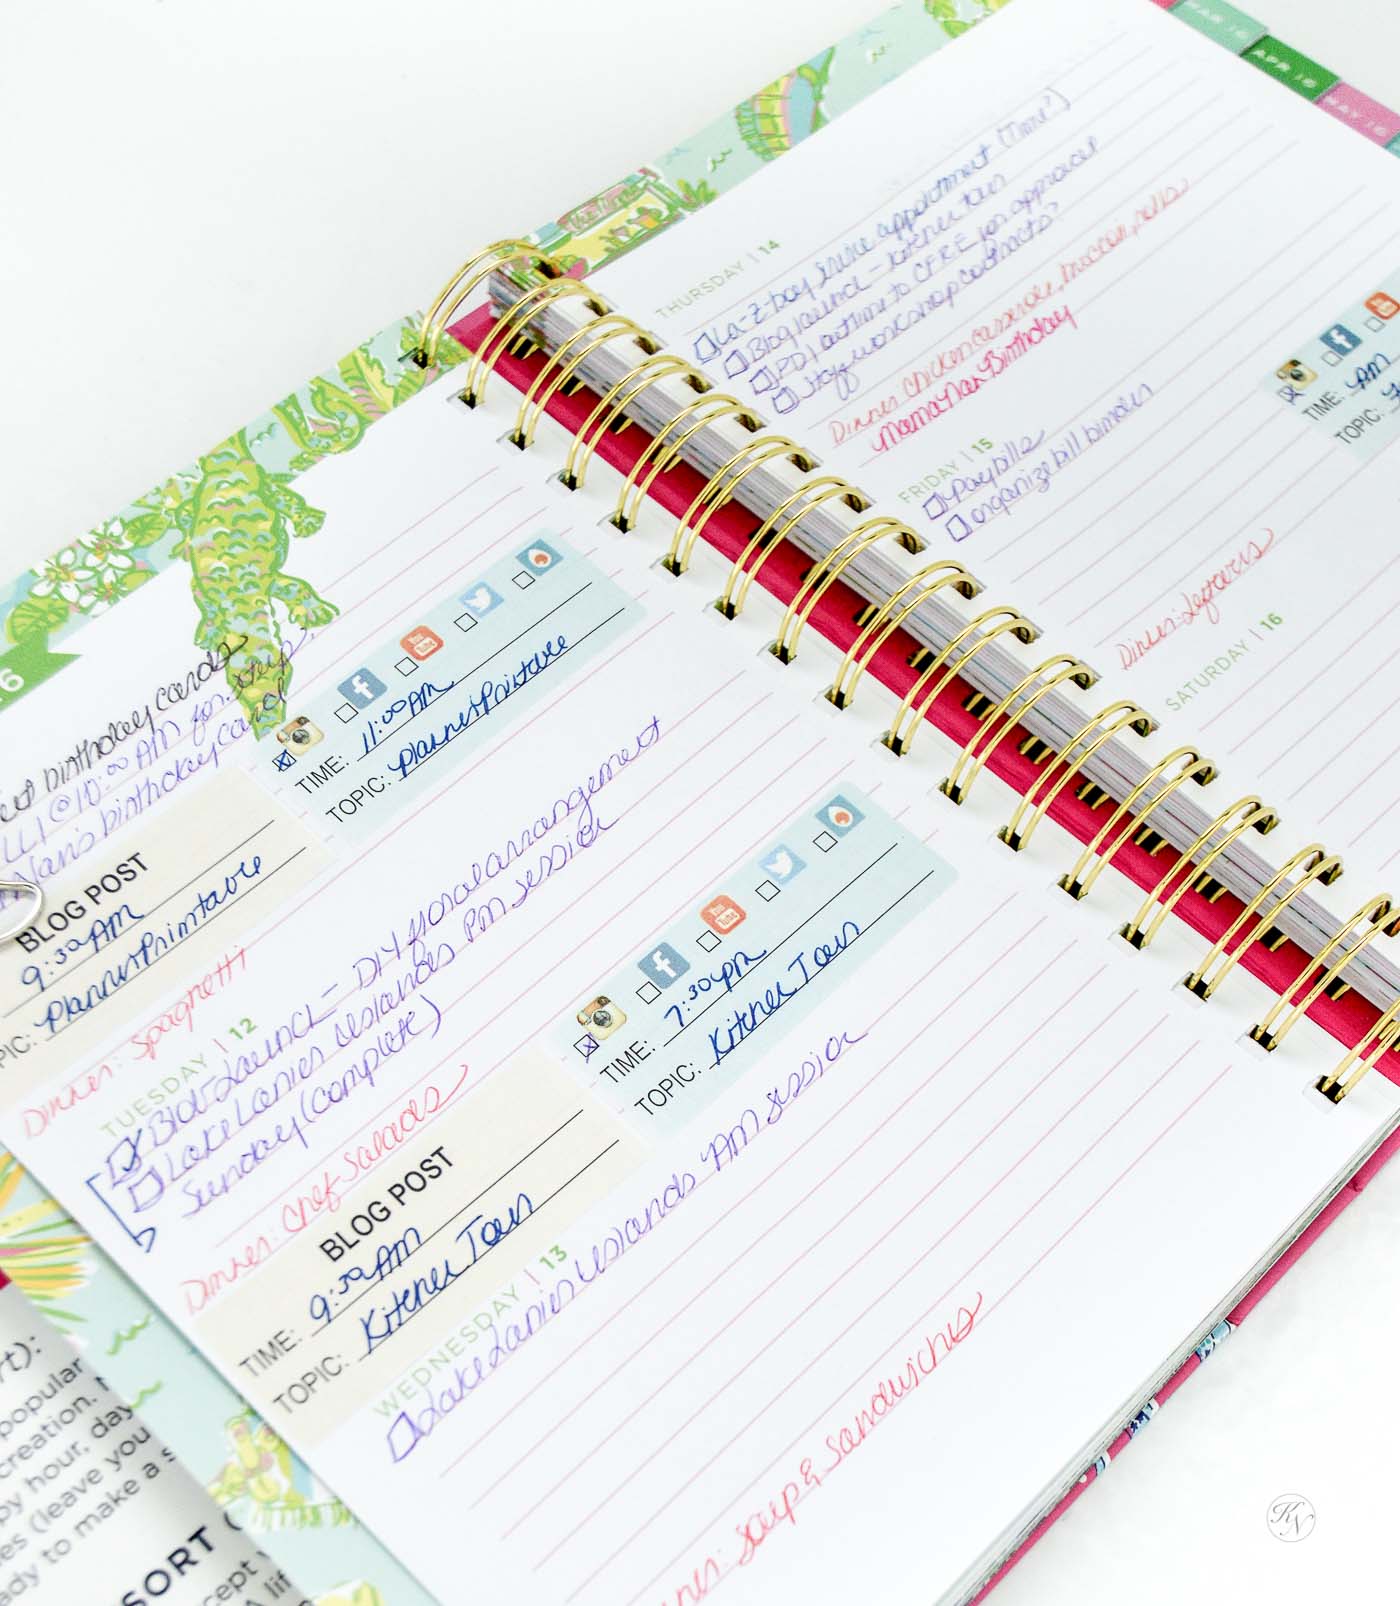 MAR 16
APR 16
MAY 16
6
birthday cards
@ 10:00 AM for
Nan's birthday card
TIME: 11:00 AM
TOPIC: Planner Printable
BLOG POST
9:30 AM
PIC: Planner Printable
Dinner: Spaghetti
TUESDAY | 12
Launch - DIY floral arrangement
Lake Lanier Islands PM session
Sunday (complete)
Dinner: Chef Salads
TIME: 7:30 PM
TOPIC: Kitchen Tour
BLOG POST
TIME: 9:30 AM
TOPIC: Kitchen Tour
WEDNESDAY | 13
Lake Lanier Islands AM session
Soup & Sandwiches
THURSDAY | 14
La-Z-boy appointment (Time?)
Blog launch - Kitchen Tour
outline to for approval
workshop contracts?
Dinner: Chicken casserole, broccoli, rolls
MamaNan Birthday
FRIDAY | 15
Pay bills
organize bill binder
Dinner: Leftovers
SATURDAY | 16
TIME: AM
TOPIC:
rt):
popular
creation.
py hour, day
es (leave you
ady to make a s
SORT (
cept
A lif
KN